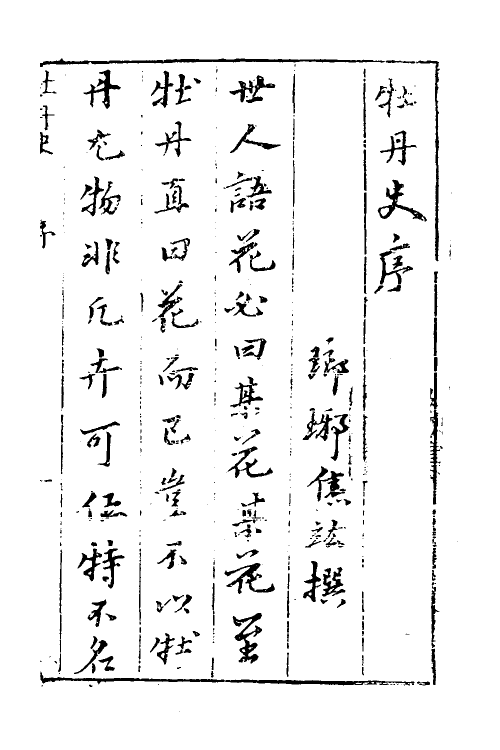 牡丹史序
瑯琊焦竑撰
世人語花必曰某花某花至
牡丹直曰花而已豈不以牡
丹尤物非凡卉可伍特不名
牡丹史 序 一